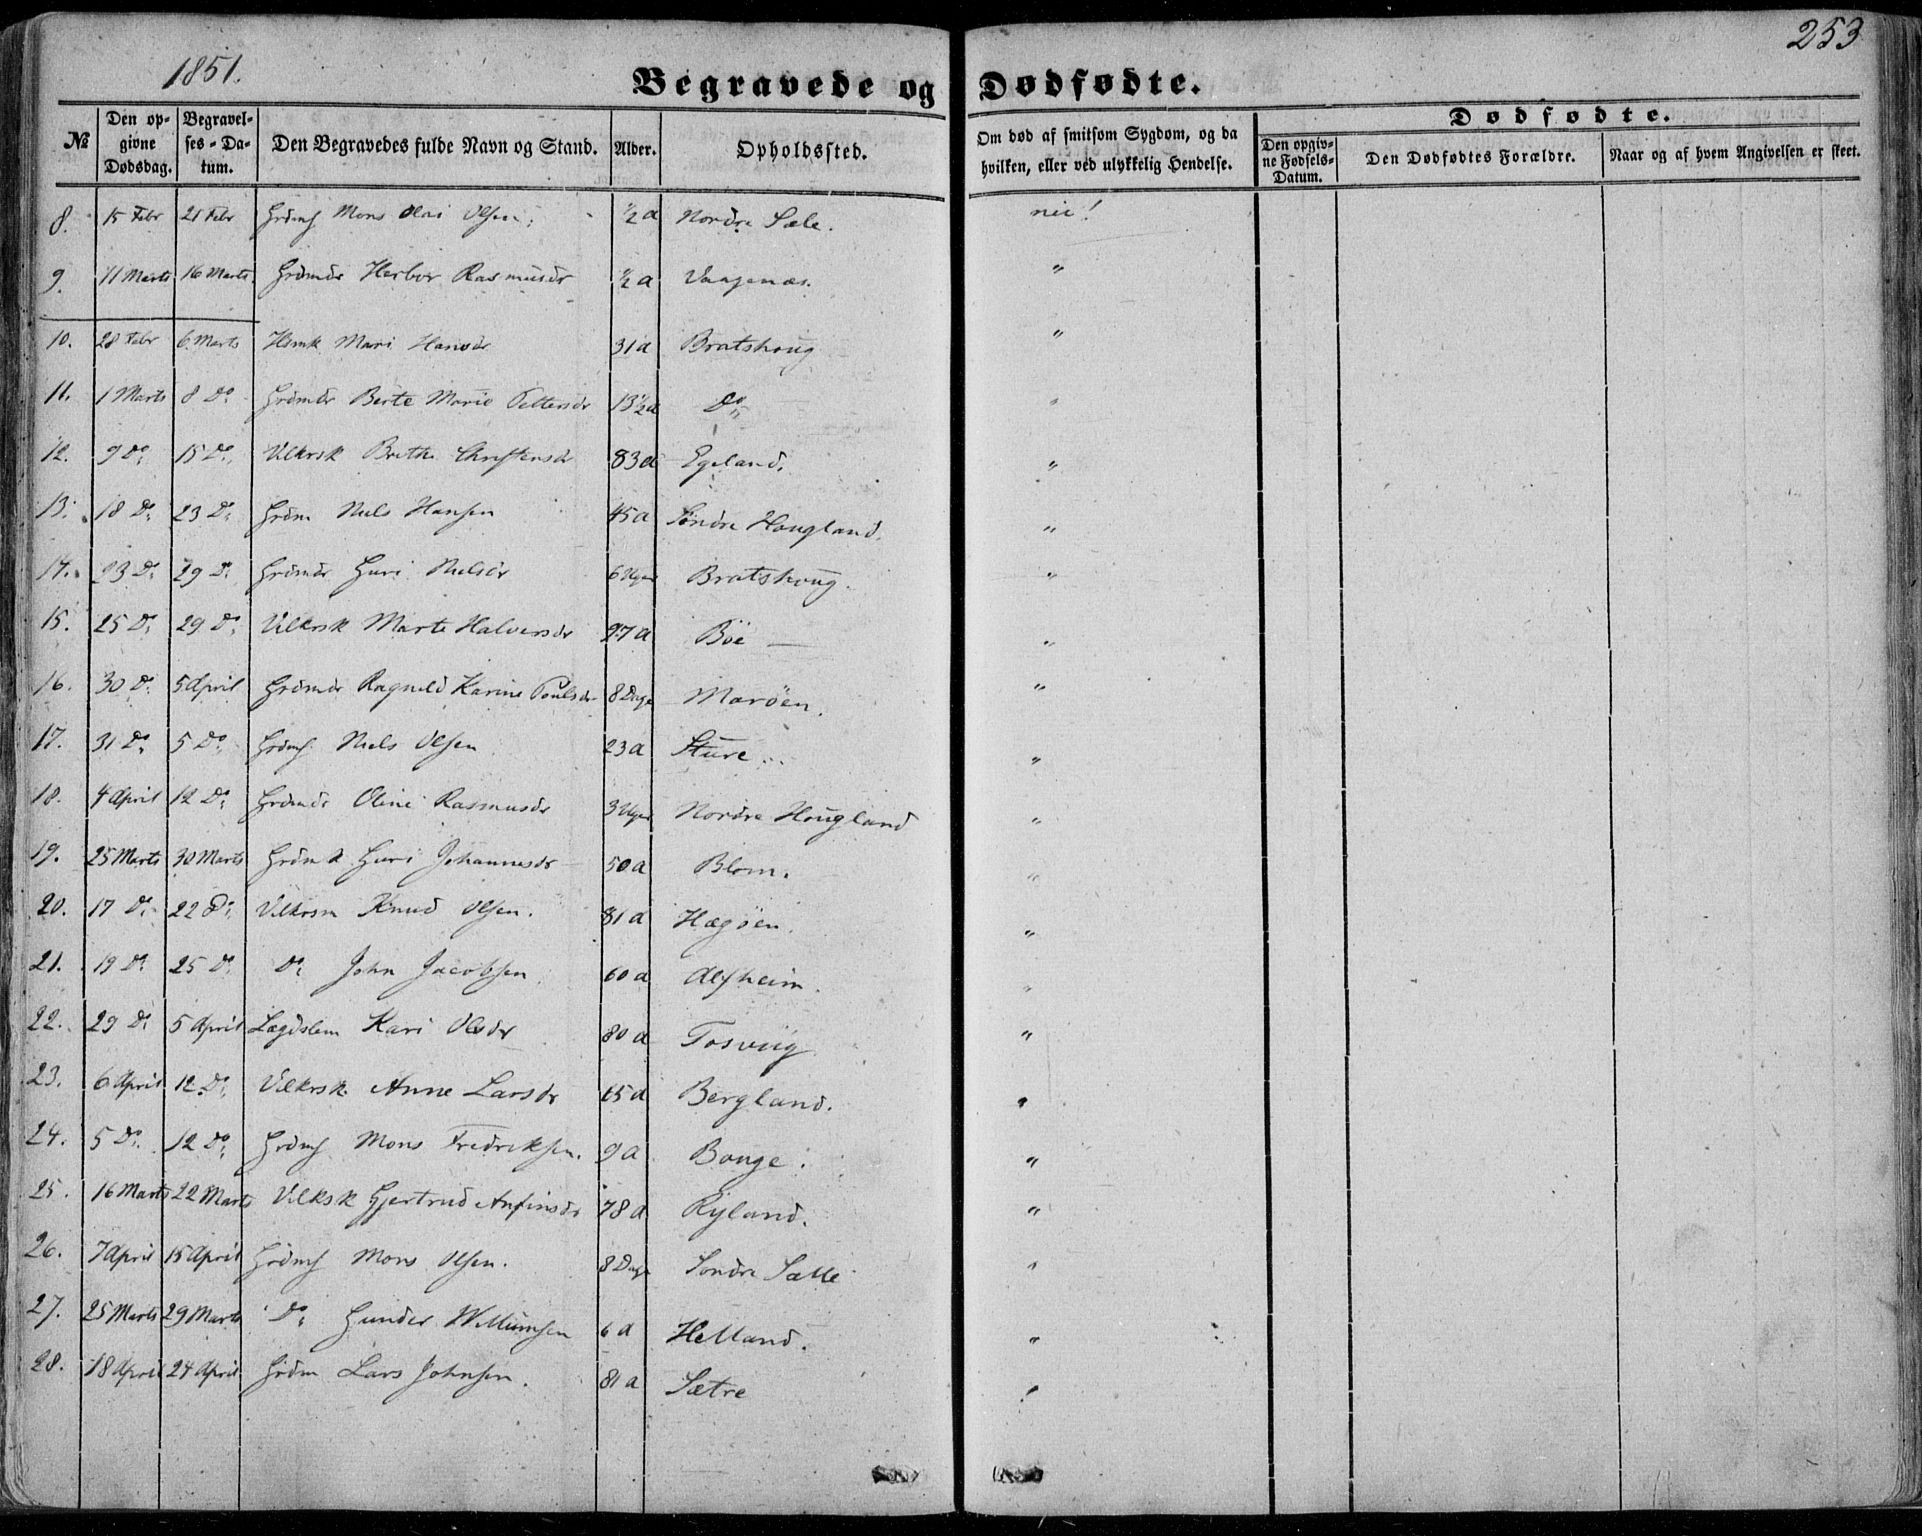 1851.
253
Begravede og Dødfødte.
№
Den opgivne Dødsdag.
Begravelses-Datum.
Den Begravedes fulde Navn og Stand.
Alder.
Opholdssted.
Om død af smitsom Sygdom, og da hvilken, eller ved ulykkelig Hendelse.
Dødfødte.
Den opgivne Fødsels-Datum.
Den Dødfødtes Forældre.
Naar og af hvem Angivelsen er skeet.
8. 15 Febr 21 Febr Mons Olai Olsen. ½ a Nordre Sæle. nei!
9. 11 Marts 16 Marts Grdmdr Herbor Rasmusdr ½ a Vaagenæs. "
10. 28 Febr 6 Marts Hsmk Mari Hansdr 31 a Bratshoug "
11. 1 Marts 8 Do Grdmdr Berte Marie Pettersdr 13½ a Do "
12. 9 Do 15 Do Vilkrsk Brithe Christensdr 83 a Egeland. "
13. 18 Do 23 Do Grdm Niels Hansen 45 a Søndre Hougland. "
14. 23 Do 29 Do Grdmdr Guri Nielsdr 6 Uger Bratshoug. "
15. 25 Do 29 Do Vilkrsk Marte Halversdr 97 a Böe "
16. 30 Do 5 April Grdmdr Ragnild Karine Poulsdr 8 Dage Maröen. "
17. 31 Do 5 Do Grdms Niels Olsen 23 a Sture "
18. 4 April 12 Do Grdmdr Oline Rasmusdr 3 Uger Nordre Hougland "
19. 25 Marts 30 Marts Grdmk Guri Johannesdr 50 a Blom. "
20. 17 Do 22 Do Vilkrsm Knud Olsen. 81 a Hægöen. "
21. 19 Do 25 Do Do John Jacobsen 60 a Alfheim. "
22. 29 Do 5 April Lægdslem Kari Olsdr 80 a Tosviig "
23. 6 April 12 Do Vilkrsk Anne Larsdr 65 a Bergland. "
24. 5 Do 12 Do Grdms Mons Fredriksen. 9 a Bouge. "
25. 16 Marts 22 Marts Vilksk Gjertrud Anfinsdr 78 a Ryland. "
26. 7 April 15 April Grdms Mons Olsen. 8 Dage Søndre Sælle "
27. 25 Marts 29 Marts Do Gunder Willumsen 6 a Helland. "
28. 18 April 24 April Grdm Lars Johnsen. 81 a Sætre "